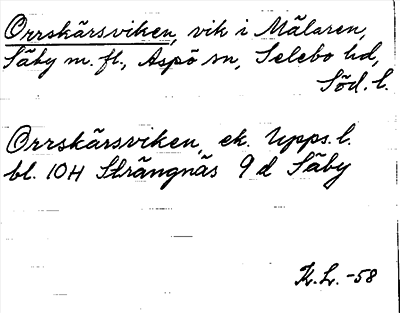 Orrskärsviken, vik i Mälaren,
Säby m. fl., Aspö sn, Selebo hd,
Söd. l.
Orrskärsviken, ek. Upps. l.
bl. 10H Strängnäs 9 d Säby
K. L. -58